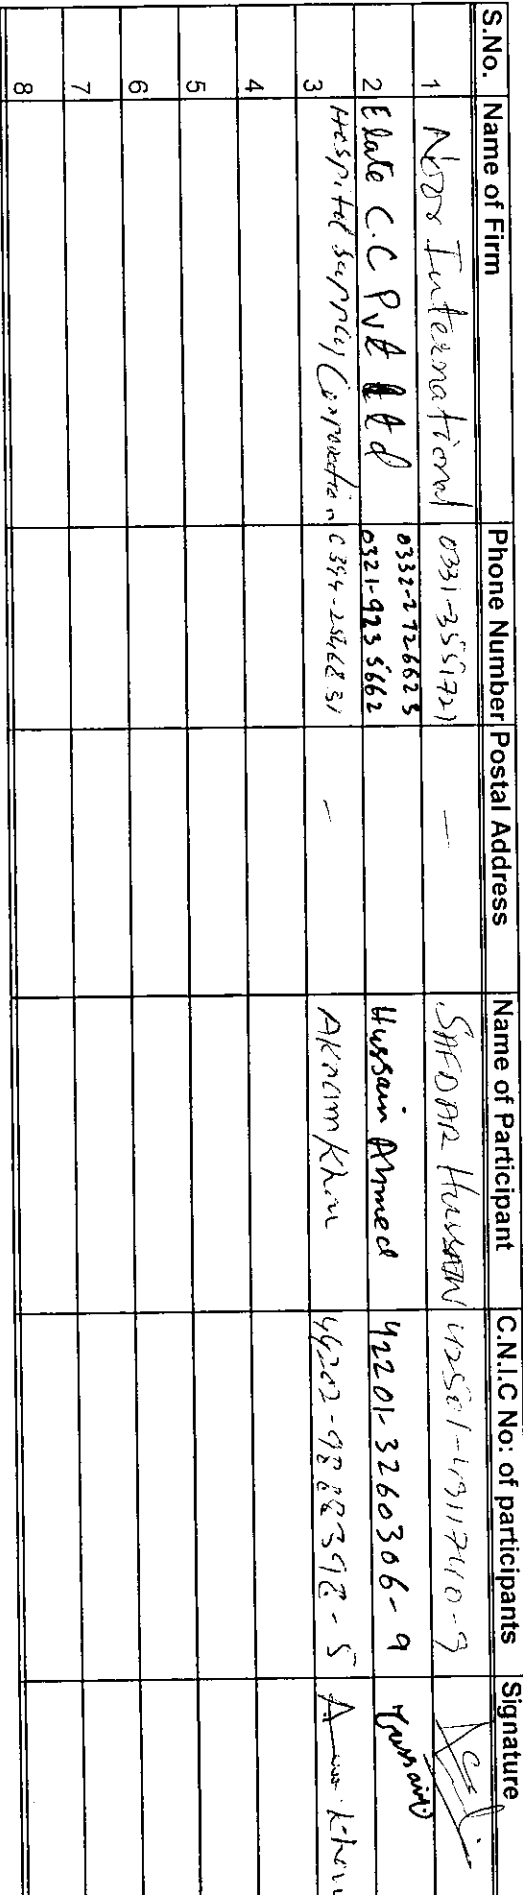 S.No. Name of Firm Phone Number Postal Address Name of Participant C.N.I.C No: of participants Signature
1 Noor International 0331-3551721 — SAFDAR HUSSAIN
0332-2726623
2 Elate C.C Pvt Ltd 0321-9235662 Hussain Ahmed 42201-3260306-9 Hussain
3 Hospital Supply Corporation — Akram Khan
4
5
6
7
8